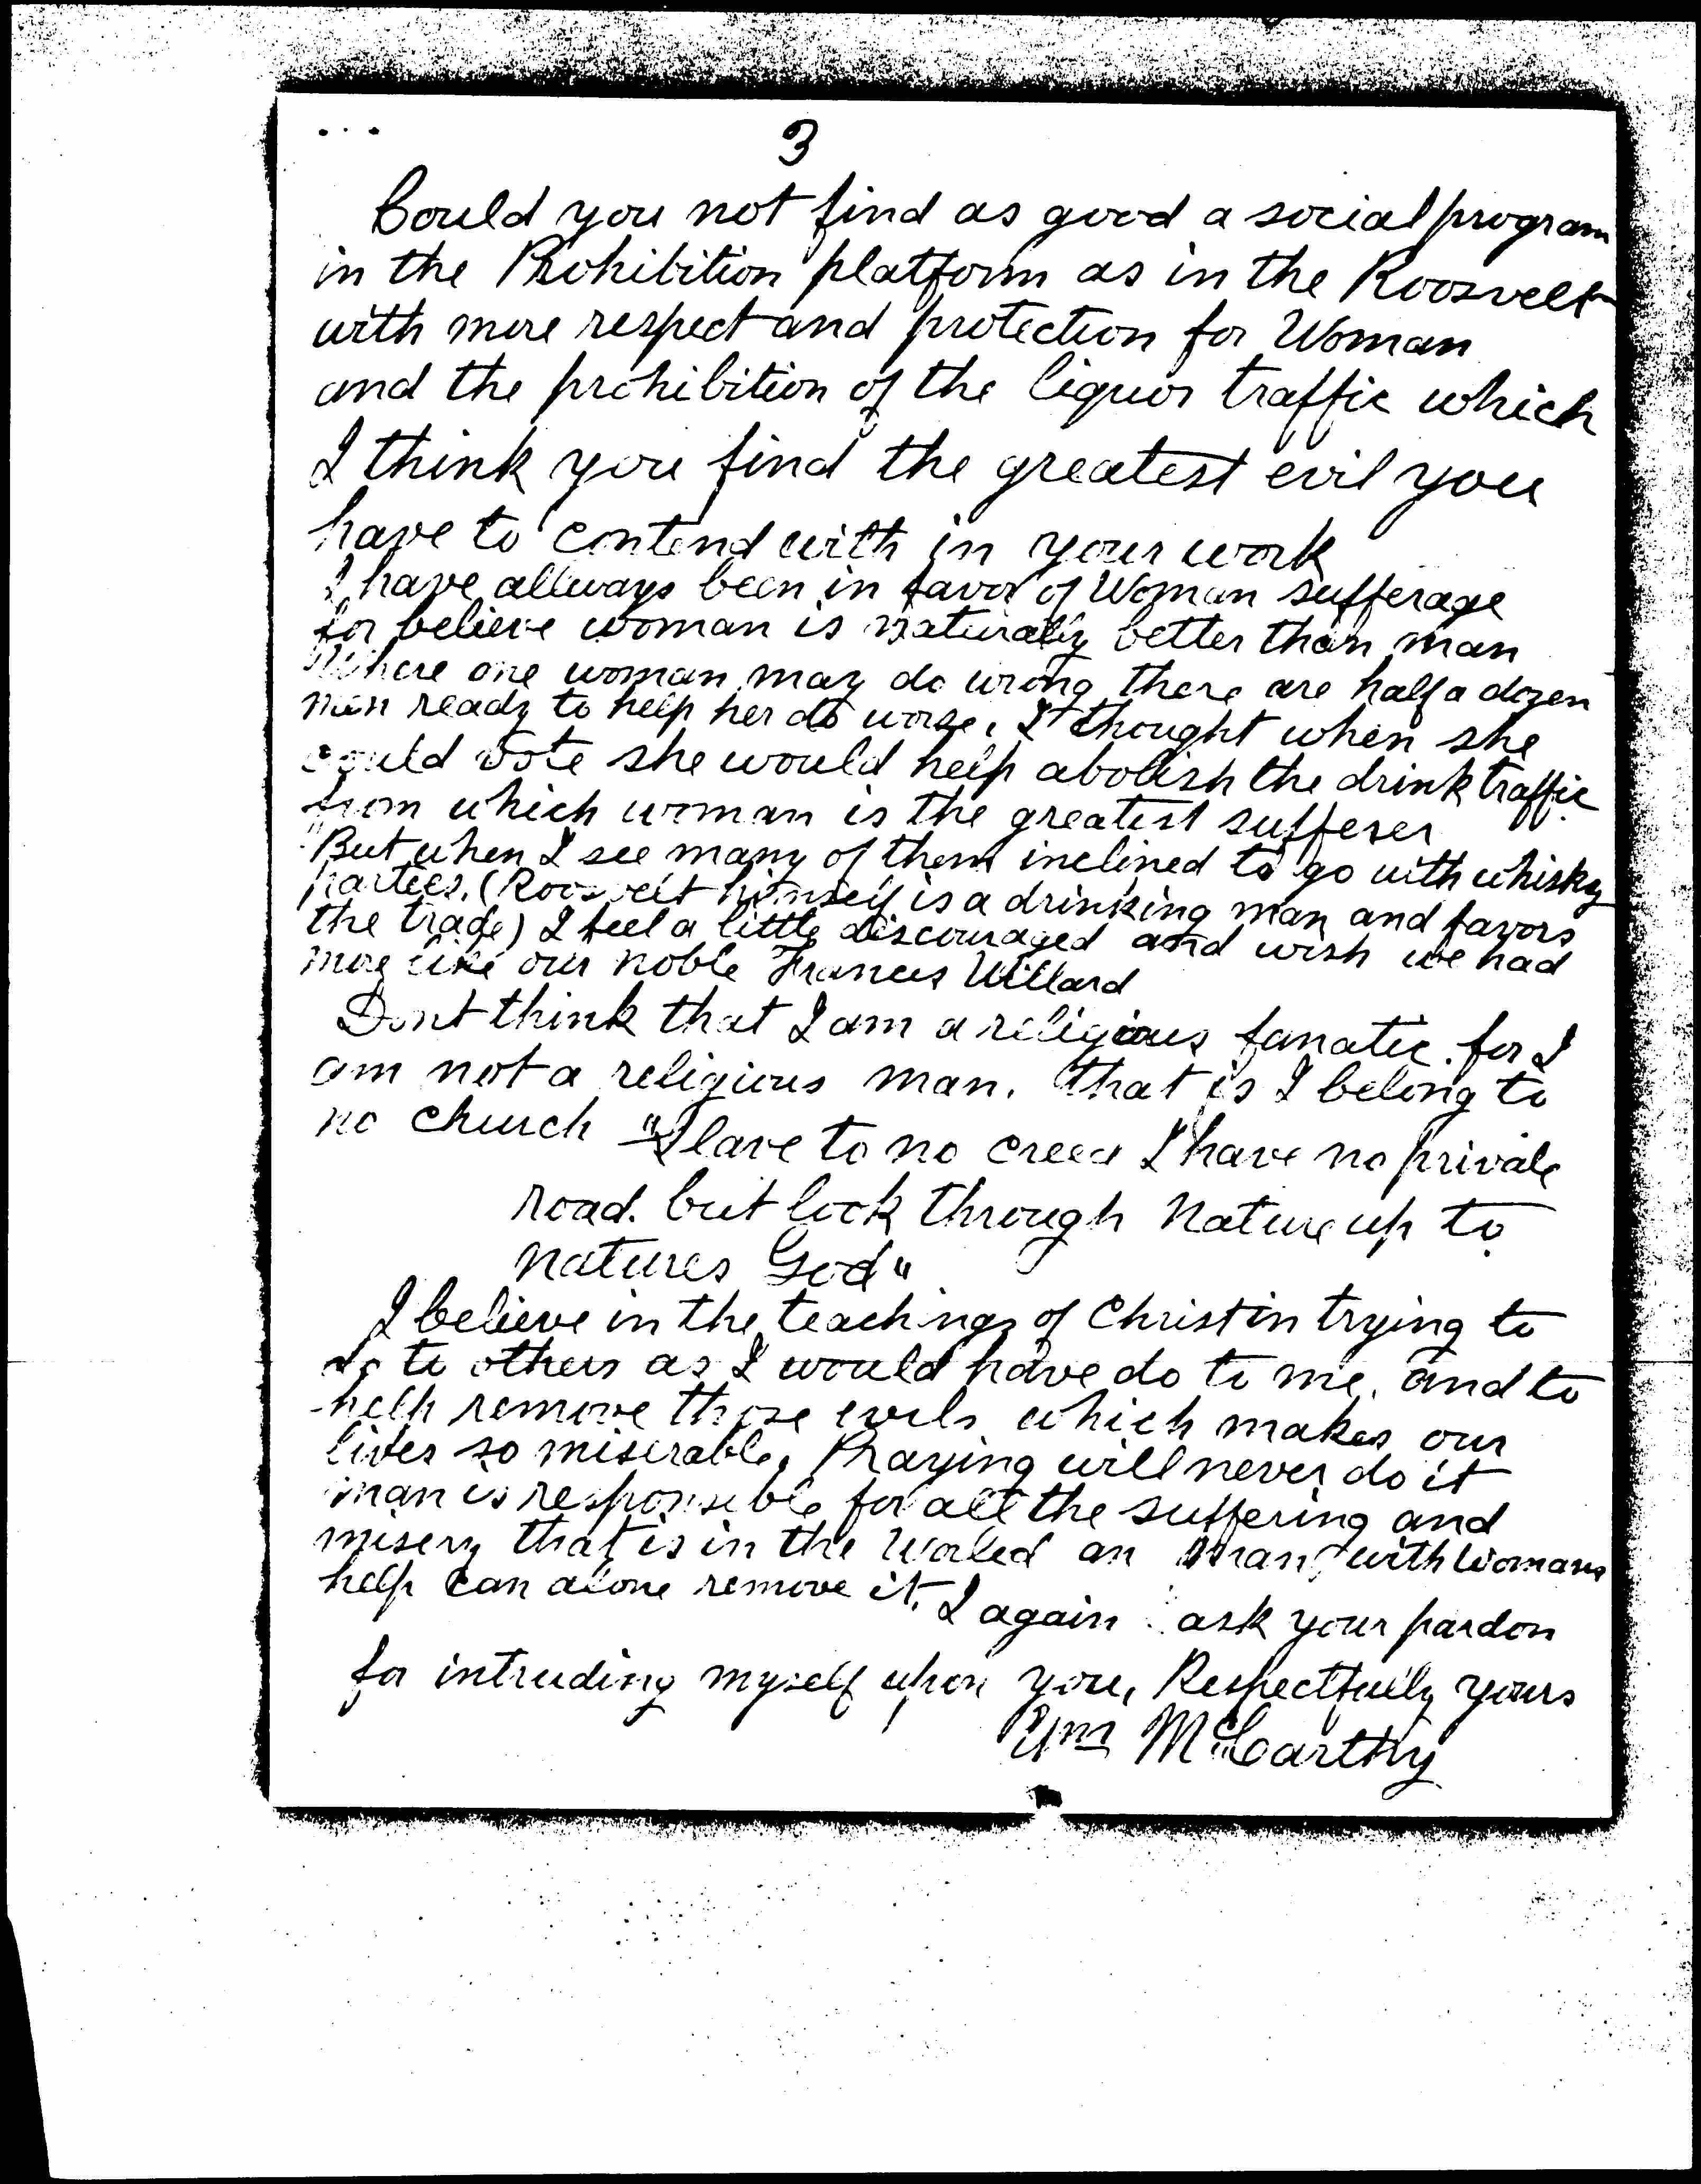 3
Could you not find as good a social program
in the Prohibition platform as in the Roosvelt
with more respect and protection for Woman
and the prohibition of the liquor traffic which
I think you find the greatest evil you
have to contend with in your work
I have allways been in favor of Woman sufferage
for believe woman is naturaly better than man
Where one woman may do wrong there are half a dozen
men ready to help her do worse, I thought when she
could vote she would help abolish the drink traffic
from which woman is the greatest sufferer
But when I see many of them inclined to go with whisky
parties, (Roosvelt himself is a drinking man and favors
the trade) I feel a little discouraged and wish we had
more like our noble Frances Willard
Dont think that I am a religious fanatic. for I
am not a religious man. that is I belong to
no church "Slave to no creed I have no private
road. but look through Nature up to
natures God"
I believe in the teachings of Christ in trying to
do to others as I would have do to me, and to
help remove those evils which makes our
lives so miserable, Praying will never do it
man is responsible for all the suffering and
misery that is in the World an man with Womans
help can alone remove it. I again ask your pardon
for intruding myself upon you, Respectfully yours
Wm McCarthy